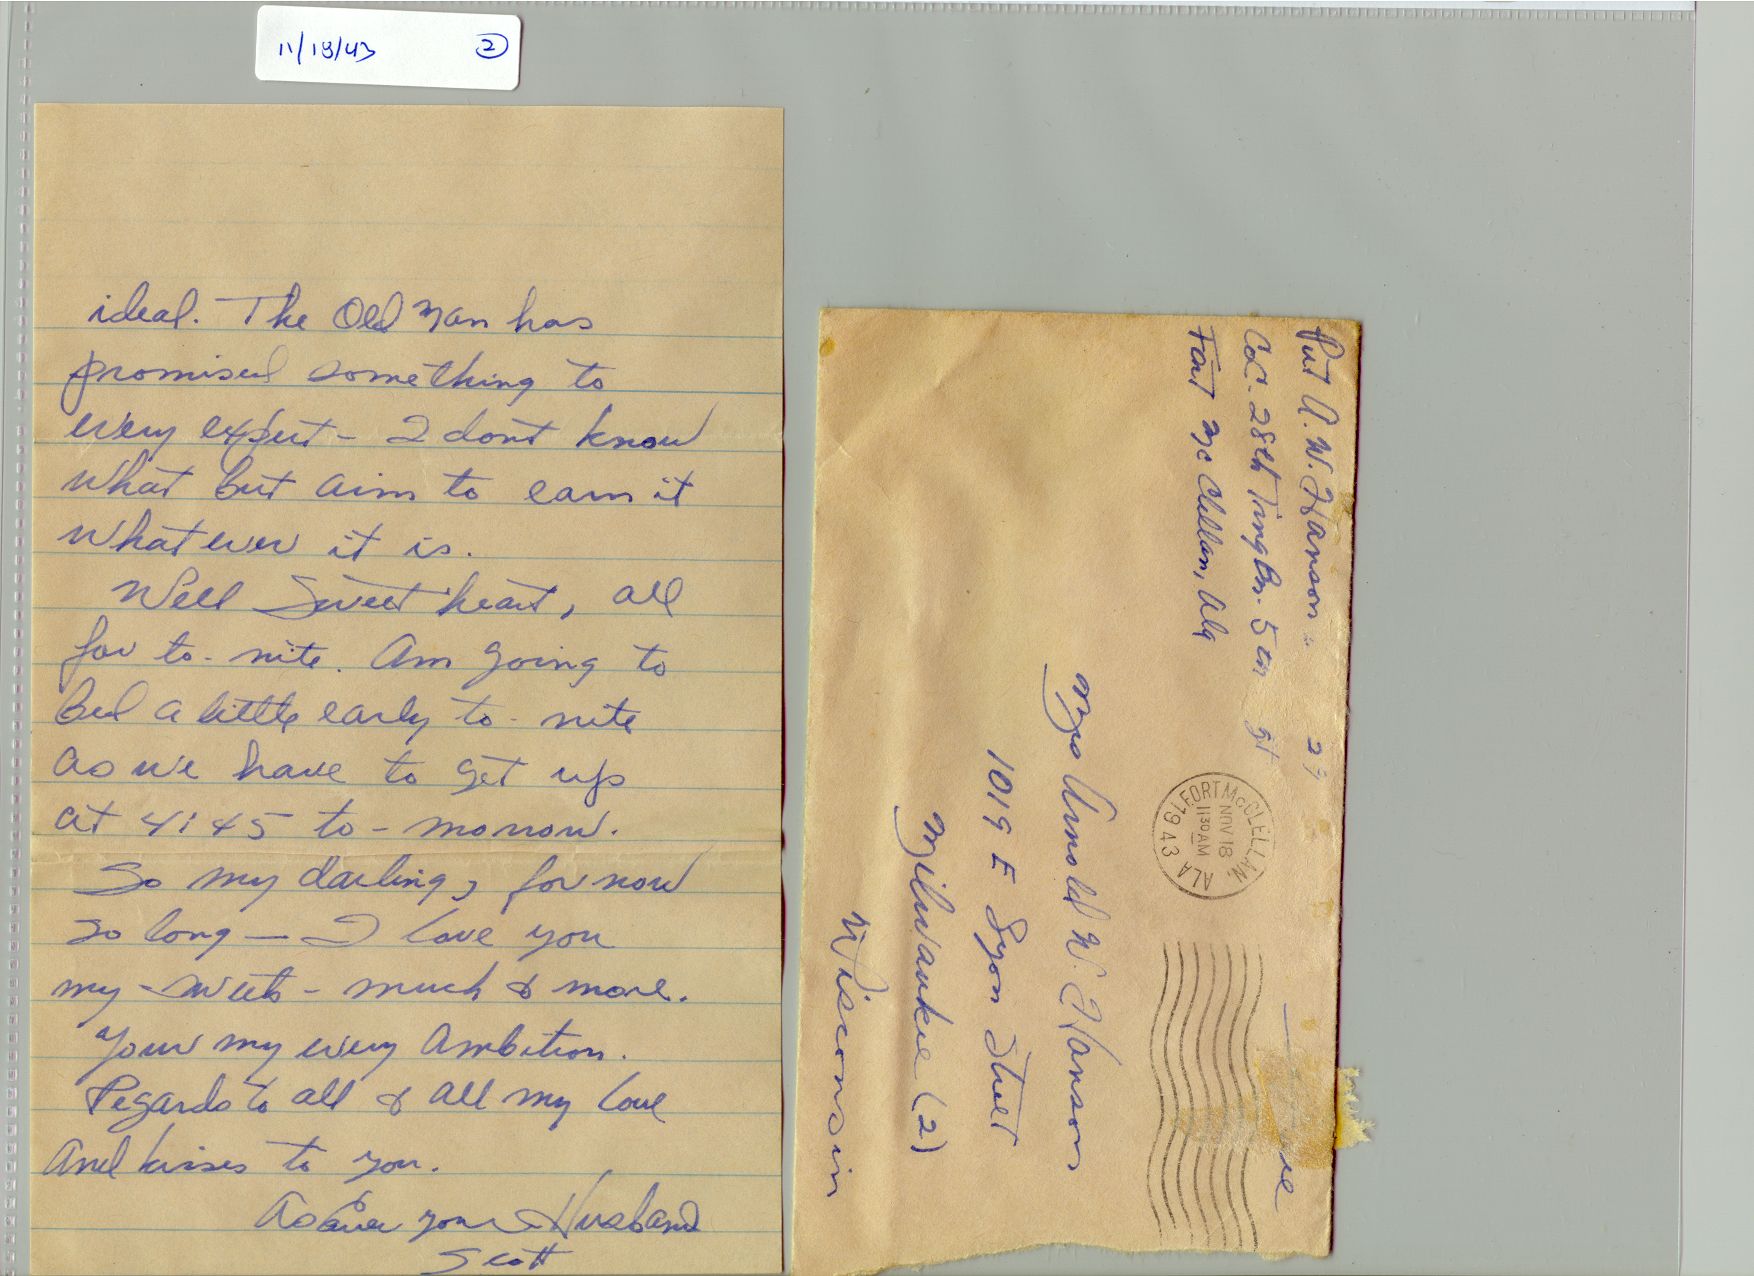 11/18/43 2
ideal. The Old Man has
promised something to
every expert - I dont know
what but aim to earn it
what ever it is.
Well Sweet heart, all
for to - nite. Am going to
bed a little early to - nite
as we have to get up
at 4:45 to - morrow.
So my darling, for now
so long — I love you
my - sweets - much & more.
Your my every ambition.
Regards to all & all my love
And kisses to you.
As Ever your Husband
Scott
Pvt A. W. Hanson
Co C. 28th Trng Bn. 5th
Fort Mc Clellan, Ala
FORT McCLELLAN, ALA
NOV 18
11 30 AM
1943
Mrs Arnold W. Hanson
1019 E Lyon Street
Milwaukee (2)
Wisconsin